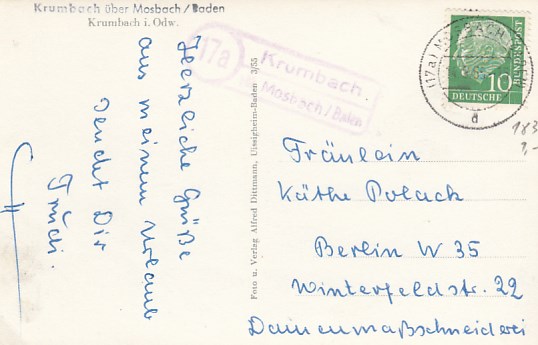 Krumbach über Mosbach/Baden
Krumbach i. Odw.
17a
Krumbach.
Mosbach/Baden
Herzliche Grüße
aus meinem Urlaub
sendet Dir
Trudi.
Foto u. Verlag Alfred Dittmann, Uissigheim-Baden 3/55
(17a) MOSBACH
d
10
DEUTSCHE
BUNDESPOST
183
Fräulein
Käthe Polack
Berlin W 35
Winterfeldstr. 22
Damenmaßschneiderei